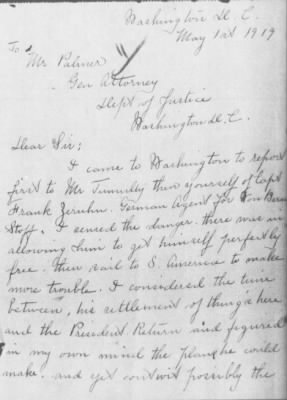 Washington D. C.
May 1st 1919
To
Mr Palmer
Gen Attorney
Dept of Justice
Washington D. C.
Dear Sir;
I came to Washington to report
first to Mr Tumulty then yourself of Capt
Frank German Agent for Von Bern
Stoff. I sensed the danger there was in
allowing him to get himself perfectly
free. then sail to S. America to make
more trouble. I considered the time
between, his settlement of things here
and the President Return and figured
in my own mind the plans he could
make. and yet possibly the